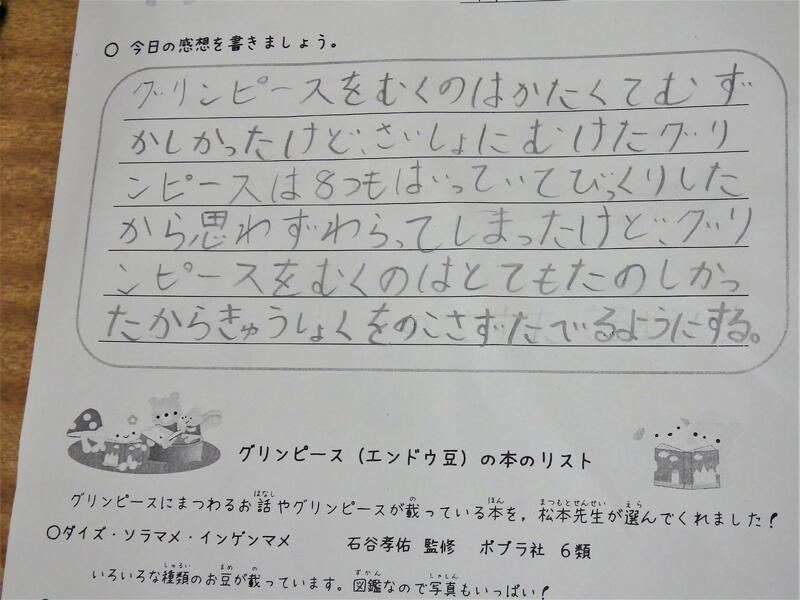 ○ 今日の感想を書きましょう。
グリンピースをむくのはかたくてむず
かしかったけど、さいしょにむけたグリ
ンピースは8つもはいっていてびっくりした
から思わずわらってしまったけど、グリ
ンピースをむくのはとてもたのしかっ
たからきゅうしょくをのこさずたでるようにする。
グリンピース（エンドウ豆）の本のリスト
グリンピースにまつわるお話やグリンピースが載っている本を，松本先生が選んでくれました！
○ダイズ・ソラマメ・インゲンマメ 石谷孝佑 監修 ポプラ社 6類
いろいろな種類のお豆が載っています。図鑑なので写真もいっぱい！